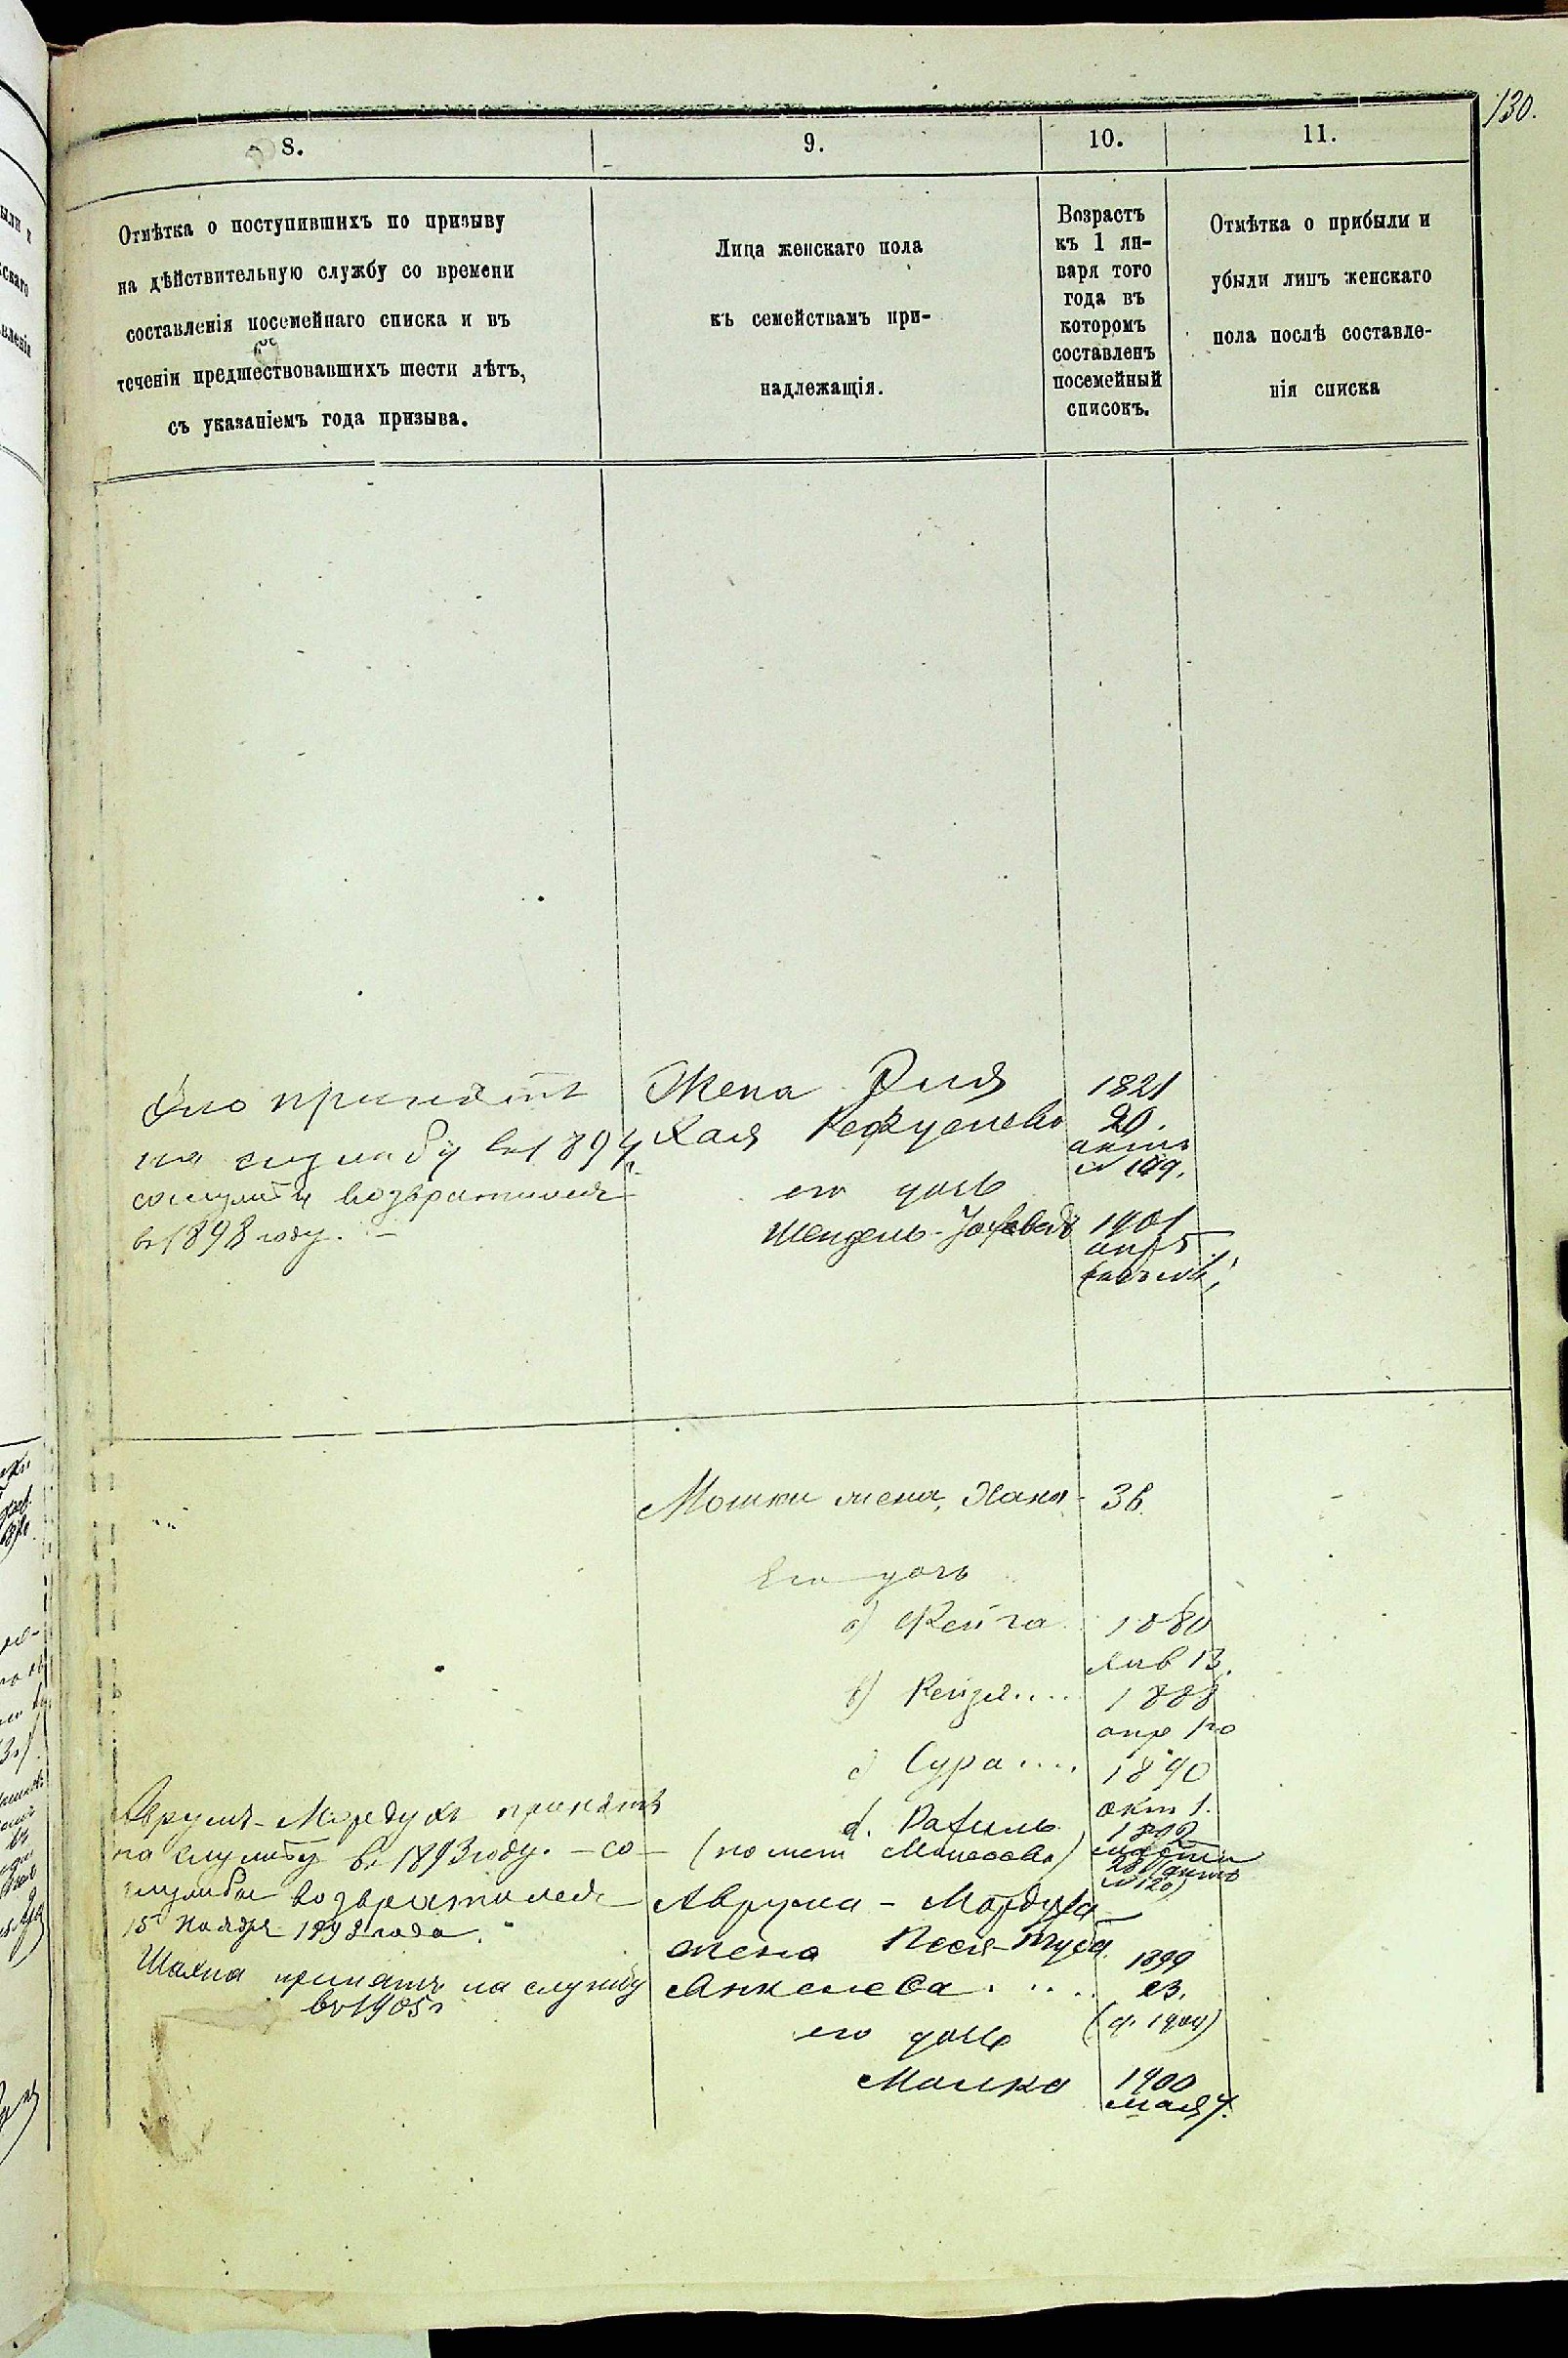 130.
8.
9.
10.
11.
Отмѣтка о поступившихъ по призыву
на дѣйствительную службу со времени
составленія посемейнаго списка и въ
теченіи предшествовавшихъ шести лѣтъ,
съ указаніемъ года призыва.
Лица женскаго пола
къ семействамъ при-
надлежащія.
Возрастъ
къ 1 ян-
варя того
года въ
которомъ
составленъ
посемейный
списокъ.
Отмѣтка о прибыли и
убыли лицъ женскаго
пола послѣ составле-
нія списка
принятъ
на службу въ 1894
возратился
въ 1898 году.
Жена
Хая
его дочь
Шендель-
1821
20.
акта
№ 109.
1901
апр 5
Мошки жена, Хана
36.
Его дочь
а) Фейга
1880
янв 13.
b) Рейзя....
1888
апр 1го
c) Сура....
1890
окт 1.
d. Рахиль
1892
(по мет
Аврумъ-Мордухъ принятъ
на службу въ 1893 году. - со
службы возвратился
15 Ноября 1898 года.
Шахна принятъ на службу
въ 1905 г
Аврума - Мордуха
жена Песя-
Янкелева....
1899
23.
(4. 1904)
его дочь
Малка
1900
мая 4.